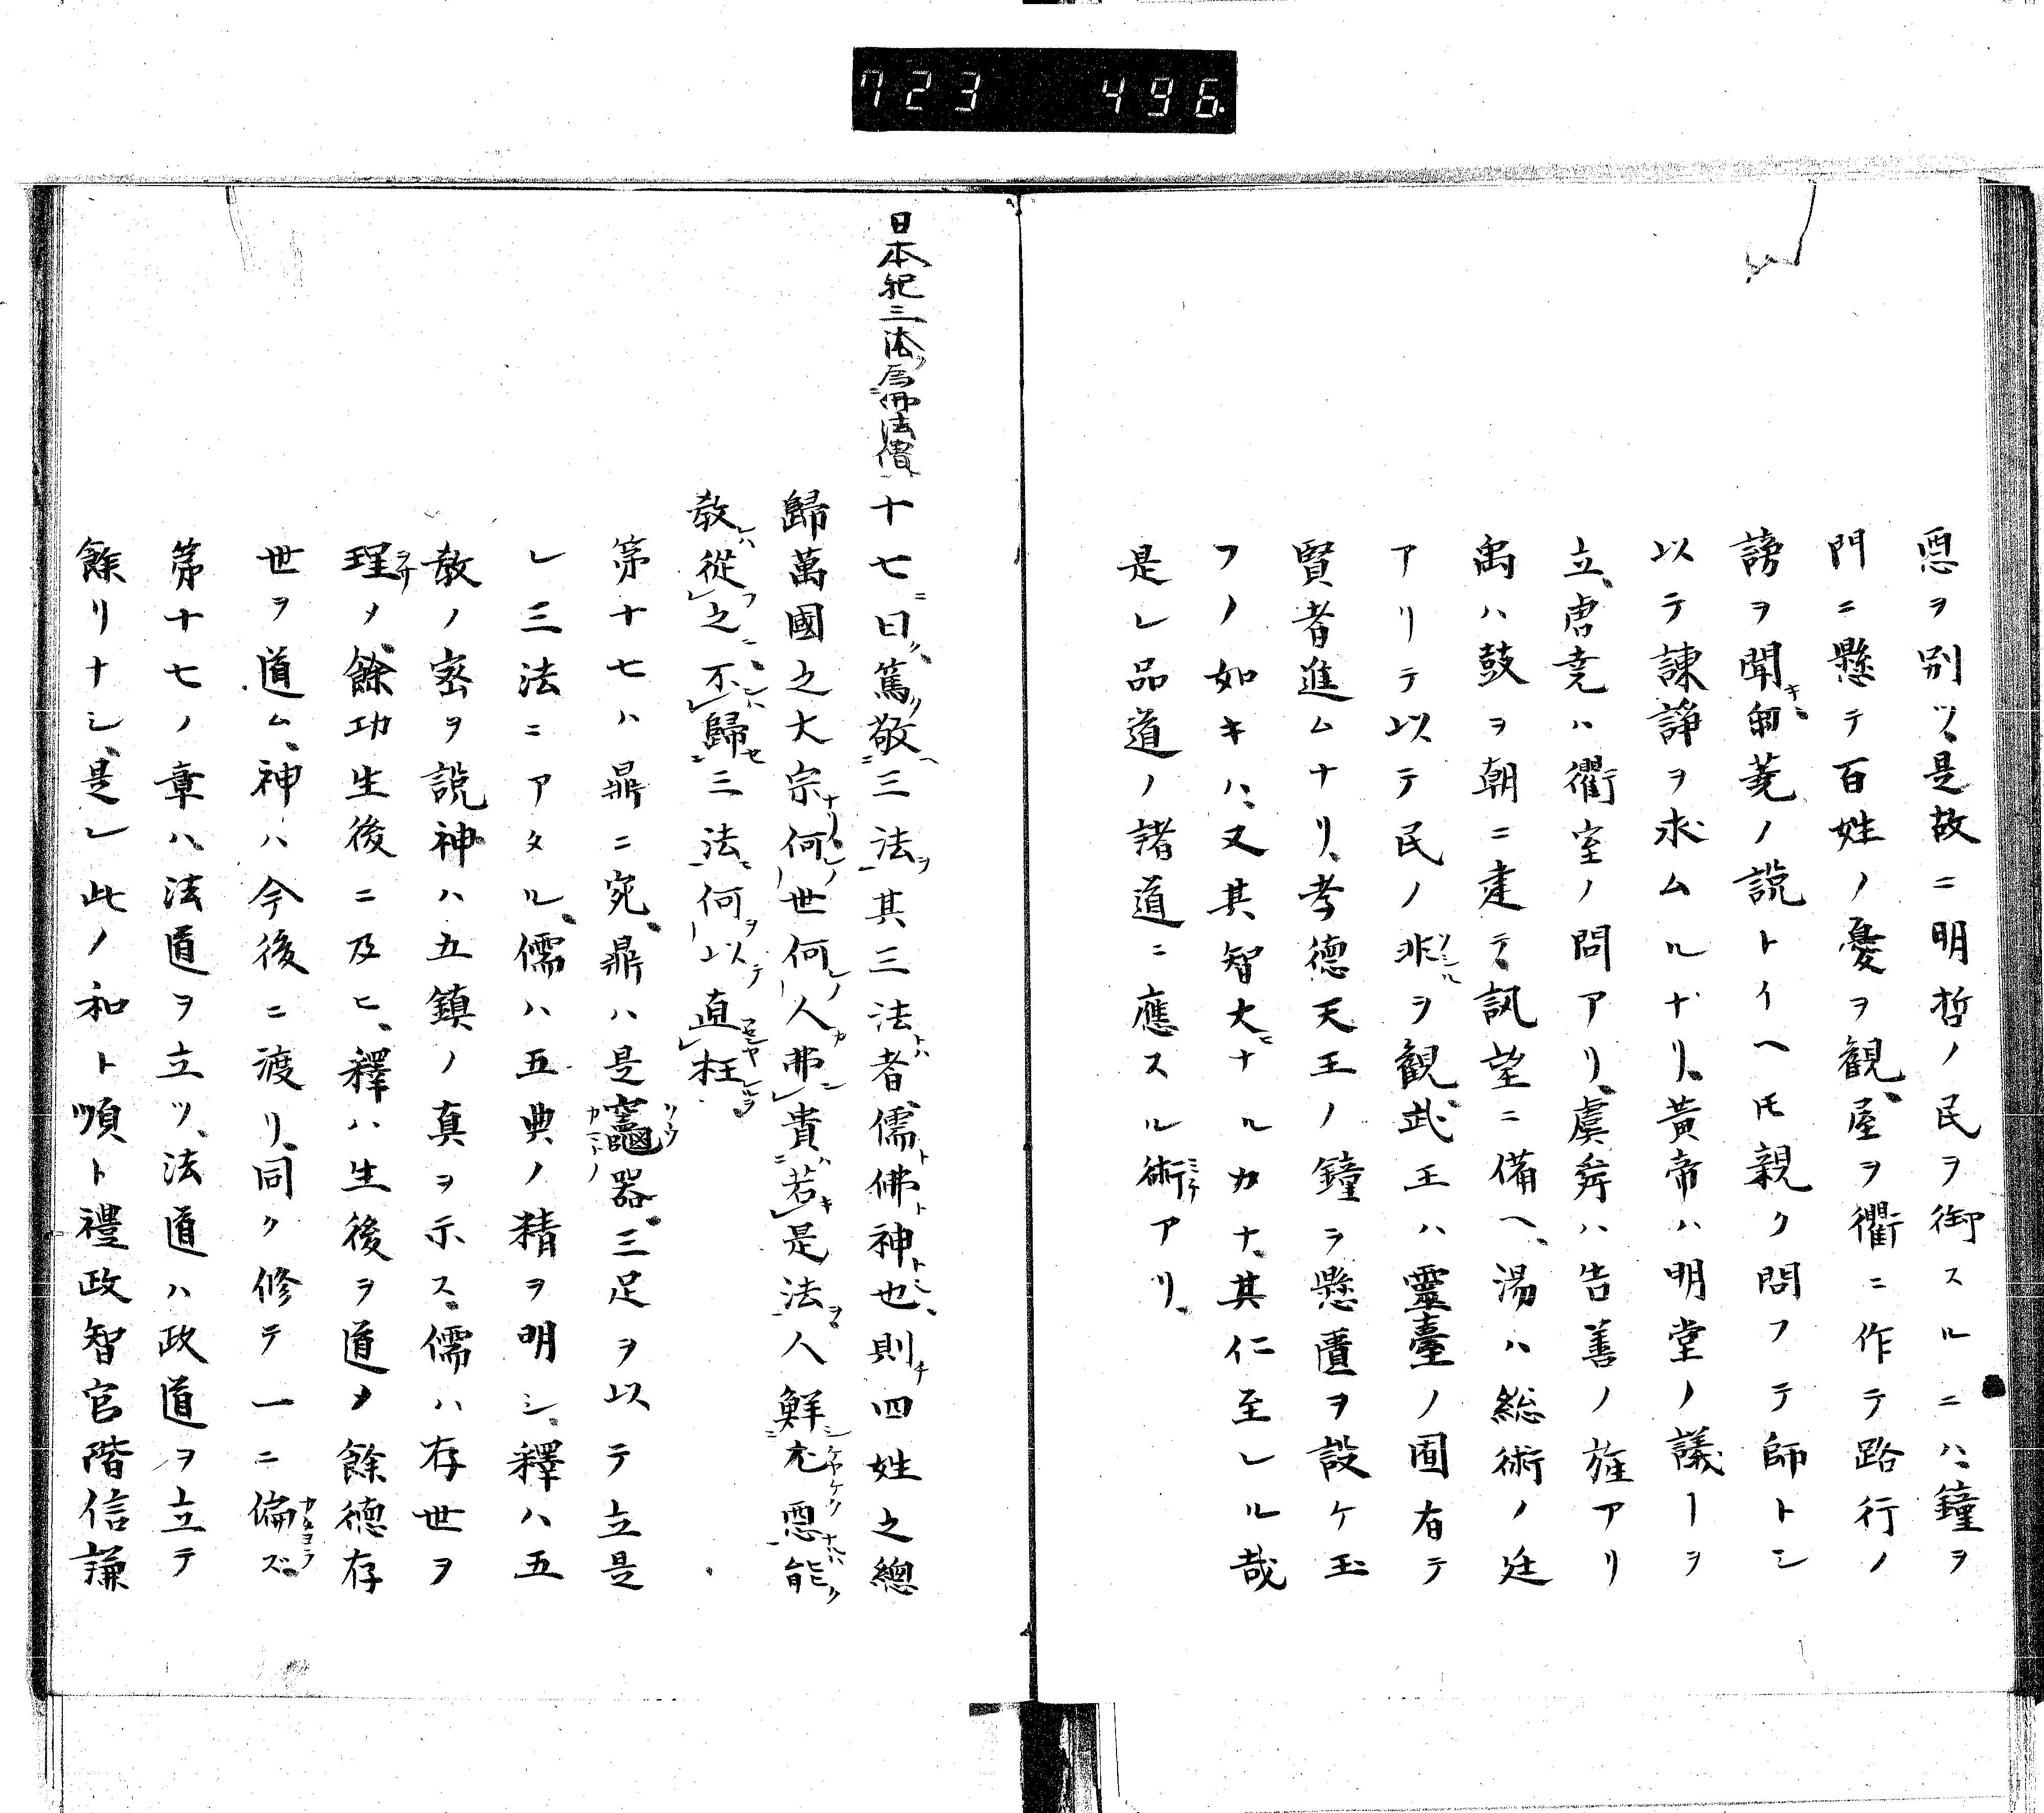 723 496
惡ヲ別ツ、是故ニ明哲ノ民ヲ御スルニハ、鐘ヲ
門ニ懸テ百姓ノ憂ヲ観、屋ヲ衢ニ作テ路行ノ
謗ヲ聞キ、蒭蕘ノ説トイヘ𪜈親ク問フテ師トシ
以テ諫諍ヲ求ムルナリ、黄帝ハ明堂ノ議ヿヲ
立、唐尭ハ衢室ノ問アリ、虞舜ハ告善ノ旌アリ
禹ハ鼓ヲ朝ニ建テ、訊望ニ備ヘ、湯ハ総術ノ廷
アリテ以テ民ノ非ソシルヲ観、武王ハ靈臺ノ囿有テ
賢者進ムナリ、孝德天王ノ鐘ヲ懸匱ヲ設ケ玉
フノ如キハ、又其智大ニナルカナ、其仁至レル哉
是レ品道ノ諸道ニ應スル術ミチアリ、
日本紀三法ヲ爲ニ佛法僧
十七ニ曰ク、篤ク敬ヘニ三法ヲ一其三法者トハ儒ト佛ト神トニ也、則チ四姓之總
歸萬國之大宗ナリ何レノ世何レノ人カ弗ンレ貴ハニ若キレ是法ヲ一人鮮シニ尤ケヤケク惡一ナルハ能ク
教レハ從フレ之ニ、不ンハレ歸セニ三法ニ一何ヲ以テ直サンヤレ枉ルヲ、
第十七ハ鼎ニ宛、鼎ハ是竈リウカミトノ器、三足ヲ以テ立是
レ三法ニアタル、儒ハ五典ノ精ヲ明シ、釋ハ五
教ノ密ヲ説神ハ五鎮ノ真ヲ示ス、儒ハ存世ヲ
理ヲサメ〆、餘功生後ニ及ヒ、釋ハ生後ヲ道〆餘德存
世ヲ道ム、神ハ今後ニ渡リ、同ク修テ一ニ偏カタヨラズ、
第十七ノ章ハ、法道ヲ立ツ、法道ハ政道ヲ立テ
餘リナシ、是レ此ノ和ト順ト禮政智官階信謙